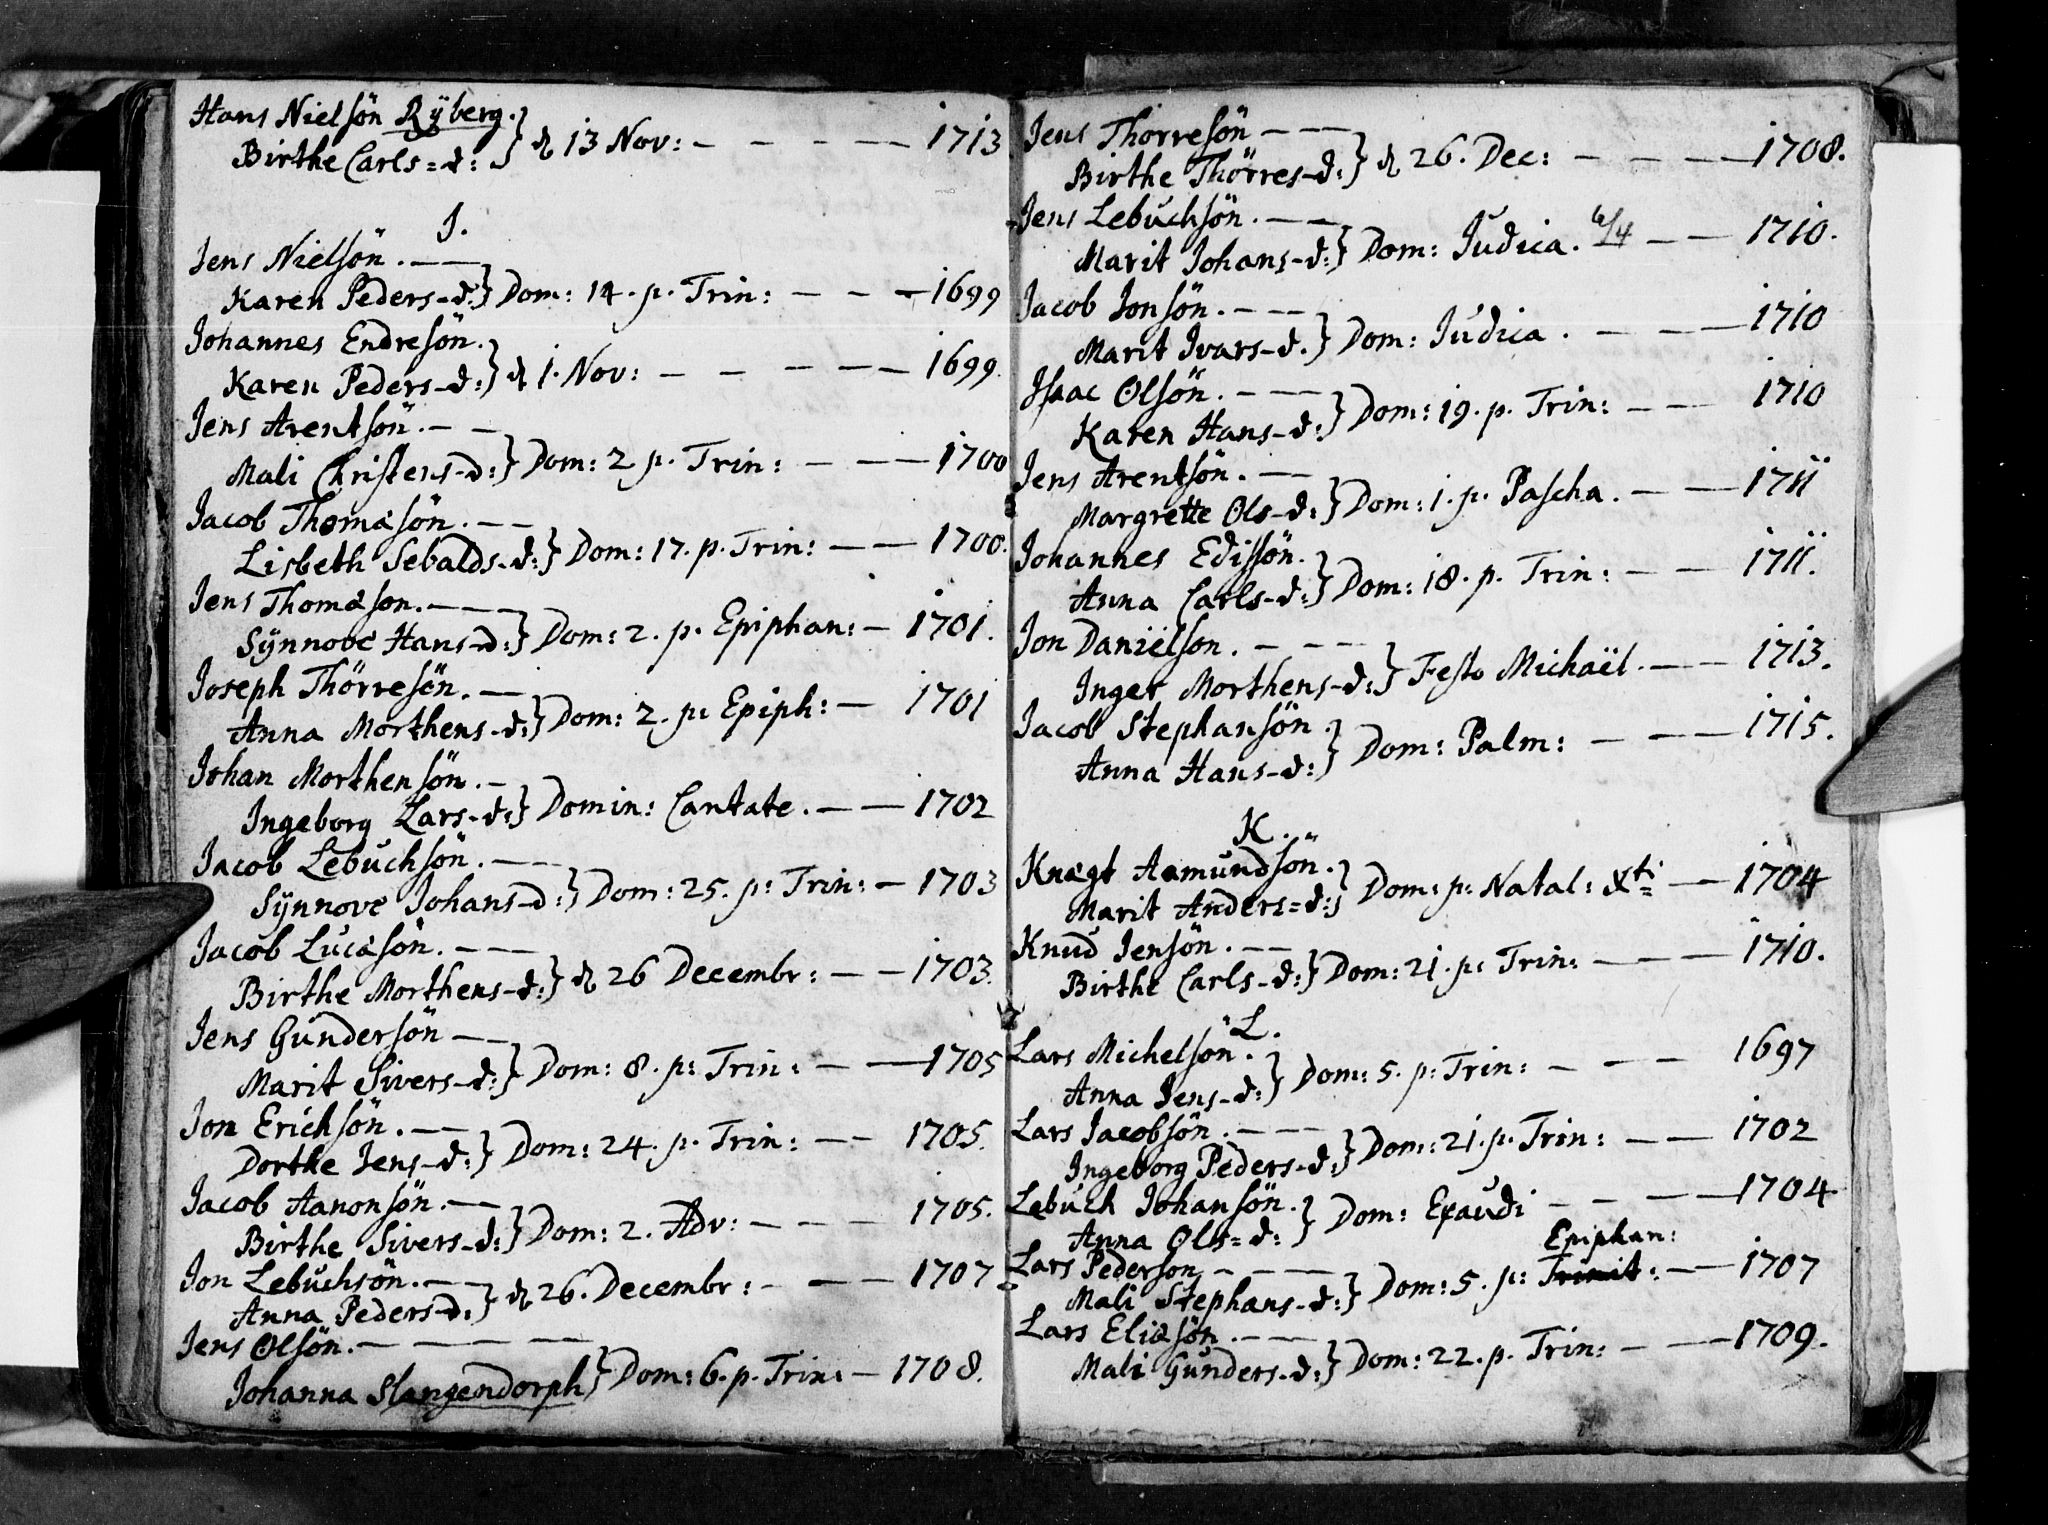 Hans Nielsön Ryberg.
Birthe Carls=d: } d. 13 Nov: — — — — 1713
J.
Jens Nielsön. — —
Karen Peders-d: } Dom: 14. p. Trin: — — — 1699
Johannes Endresön.
Karen Peders-d: } d. 1. Nov: — — — — — 1699.
Jens Arentsön. — —
Mali Christens-d: } Dom: 2 p. Trin: — — — 1700
Jacob Thomæsön. — —
Lisbeth Sebalds-d: } Dom: 17. p. Trin: — — 1700.
Jens Thomæson. — — —
Sÿnnove Hans-d: } Dom: 2. p. Epiphan: — 1701.
Joseph Thörresön. —
Anna Morthens-d: } Dom: 2. p: Epiph: — 1701
Johan Morthensön. —
Ingeborg Lars-d: } Domin: Cantate. — — 1702
Jacob Lebuchsön. — —
Sÿnnove Johans-d: } Dom: 25. p: Trin: — 1703
Jacob Lucæsön. — — —
Birthe Morthens-d: } d. 26 Decembr: — — 1703.
Jens Gundersön — —
Marit Sivers-d: } Dom: 8. p: Trin: — — 1705
Jon Erichsön. — —
Dorthe Jens-d: } Dom: 24. p. Trin: — — 1705.
Jacob Aanonsön. — —
Birthe Sivers-d: } Dom: 2. Adv: — — — — 1705.
Jon Lebuchsön. — —
Anna Peders-d: } d. 26. Decembr: — — — 1707
Jens Olsön. — — — —
Johanna Slangendorph } Dom: 6. p. Trin: — 1708.
Jens Thorresön — — —
Birthe Thörres-d: } d. 26. Dec: — — — — 1708.
Jens Lebuchsön. — —
Marit Johans-d: } Dom: Judica. 6/4 — — 1710.
Jacob Jonsön. — — —
Marit Ivars-d. } Dom: Judica. — — — 1710
Isaac Olsön. — — —
Karen Hans-d: } Dom: 19. p. Trin: — — 1710
Jens Arentsön. — —
Margrette Ols-d: } Dom: 1. p. Pascha. — — 1711
Johannes Edissön.
Anna Carls-d: } Dom: 18. p. Trin: — — 1711.
Jon Daniëlson. — — —
Inger Morthens-d: } Festo Michaël. — — 1713.
Jacob Stephansön.
Anna Hans-d: } Dom: Palm: — — — 1715.
K.
Knægt Aamundsön.
Marit Anders=d: } Dom: p: Natal: Xti — 1704
Knud Jensön. — —
Birthe Carls-d: } Dom: 21. p: Trin: — — — 1710.
L.
Lars Michelsön.
Anna Jens-d: } Dom: 5. p: Trin: — — — 1697
Lars Jacobsön. — — —
Ingeborg Peders-d: } Dom: 21. p. Trin: — — 1702
Lebuch Johansön.
Anna Ols=d: } Dom: Exaudi — — — 1704
Epiphan:
Lars Pederson — — — —
Mali Stephans-d: } Dom: 5. p: Trinit: — — 1707
Lars Eliæsön. — — —
Mali Gunders-d: } Dom: 22. p. Trin: — — 1709.